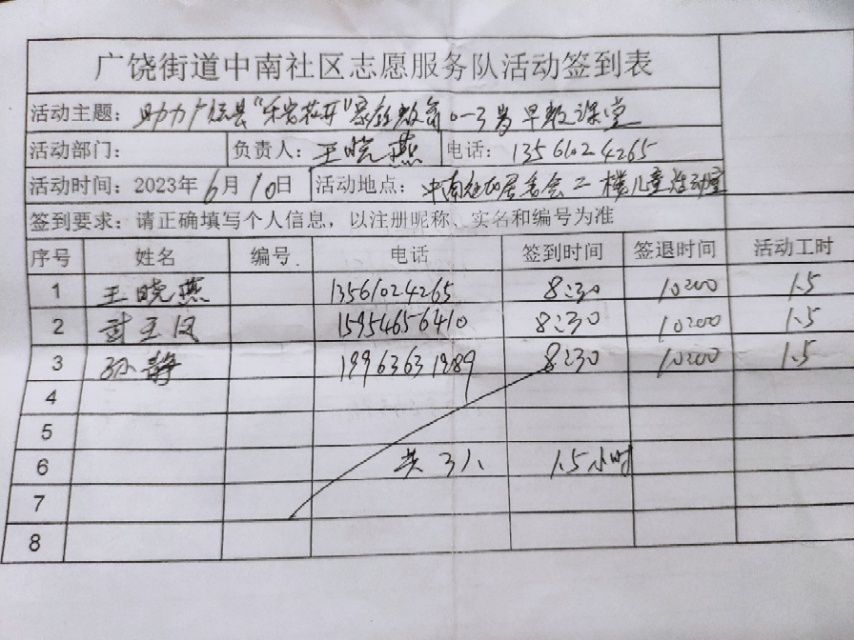 广饶街道中南社区志愿服务队活动签到表
活动主题：助力广饶县"乐安花开"家庭教育0-3岁早教课堂
活动部门： 负责人：王晓燕 电话：13561024265
活动时间：2023年6月10日 活动地点：中南社区居委会二楼儿童活动室
签到要求：请正确填写个人信息，以注册昵称、实名和编号为准
序号 姓名 编号 电话 签到时间 签退时间 活动工时
1 王晓燕 13561024265 8:30 10:00 1.5
2 武玉凤 15954656410 8:30 10:00 1.5
3 孙静 19963631989 8:30 10:00 1.5
4
5
6 共3人 1.5小时
7
8